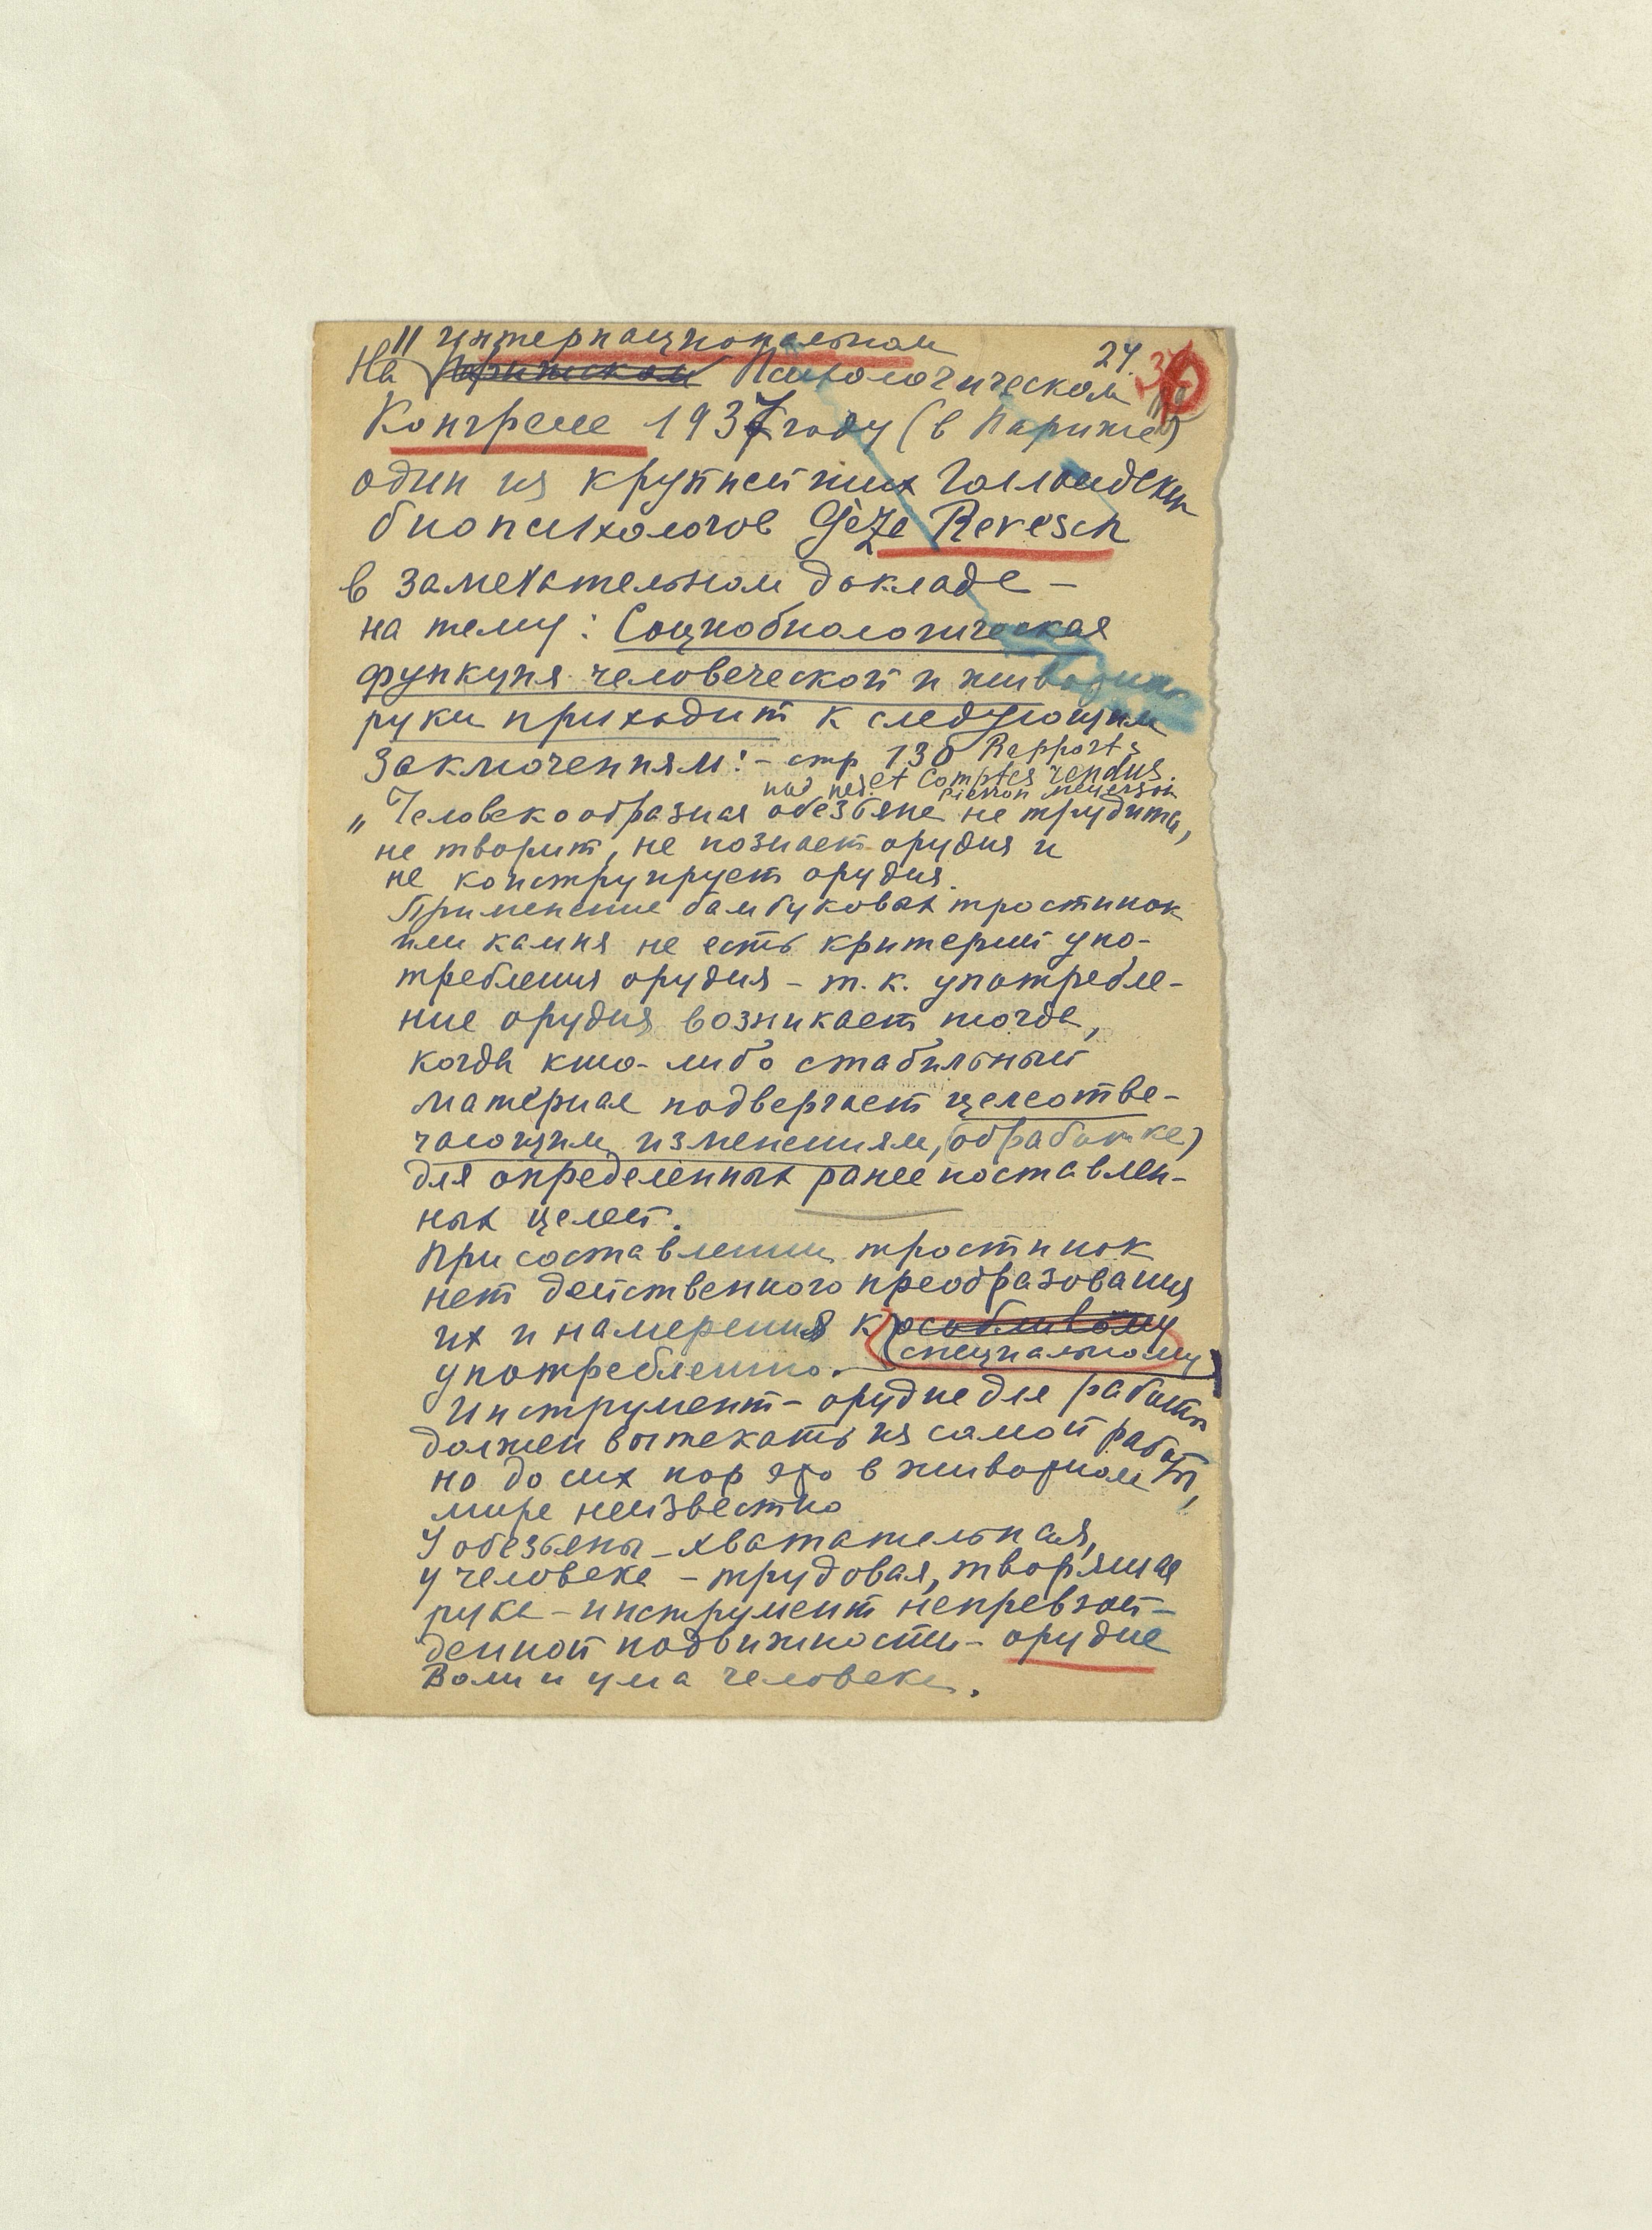 11 интернациональном
24.
На Парижском Психологическом
Конгрессе 1937 году (в Париже)
один из крупнейших Голландских
биопсихологов Gèza Revesch
в замечательном докладе –
на тему: Социобиологическая
функция человеческой и животной
руки приходит к следующим
заключениям: – стр 130 Rapports
et Comptes rendus.
под ред. Pieron Meyerson
„Человекообразная обезьяна не трудится,
не творит, не познает орудия и
не конструирует орудия.
Применение бамбуковых тростинок
или камня не есть критерий упо-
требления орудия – т.к. употребле-
ние орудия возникает тогда,
когда кто-либо стабильный
материал подвергает целеотве-
чающим изменениям, (обработке)
для определенных ранее поставлен-
ных целей.
При составлении тростинок
нет действенного преобразования
их и намерения к особливому
специальному
употреблению.
Инструмент – орудие для работы
должен вытекать из самой работы,
но до сих пор это в животном
мире неизвестно
У обезьяны – хватательная,
у человека – трудовая, творящая
рука – инструмент непревзой-
денной подвижности – орудие
Воли и ума человека.